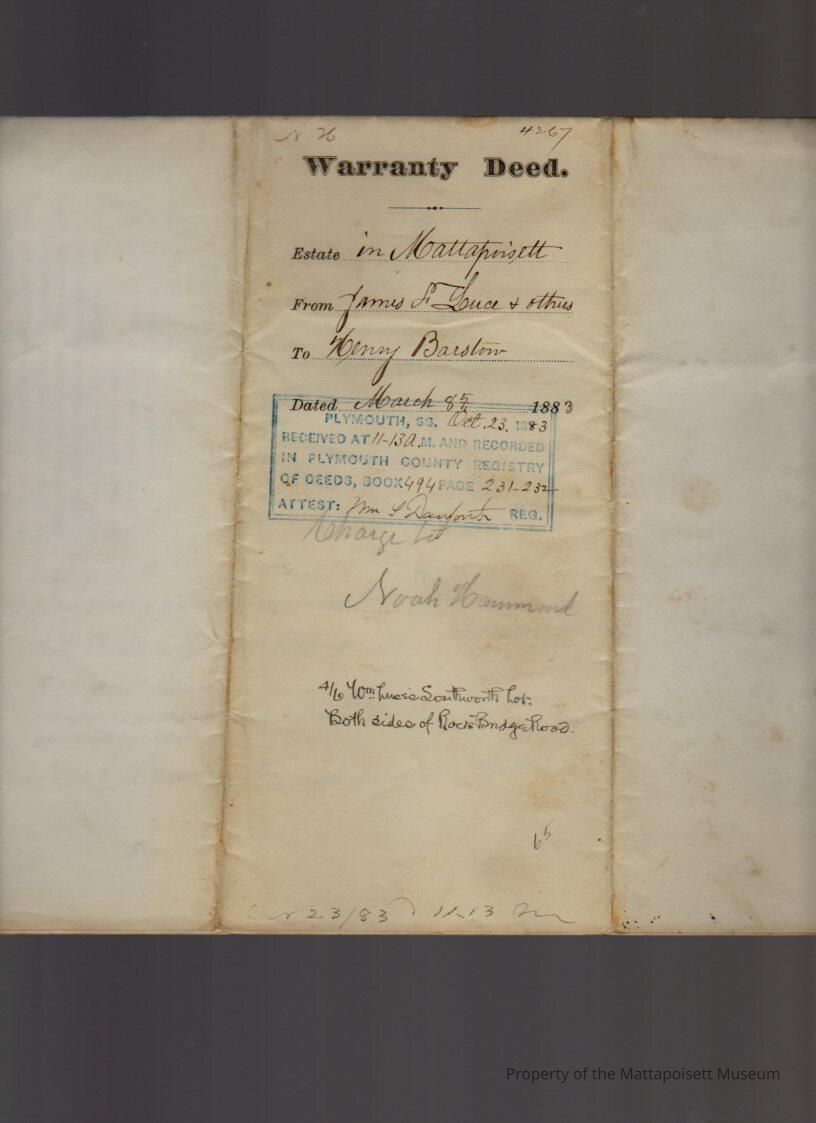 N 26 4267
Warranty Deed.
Estate in Mattapoisett
From James F Luce & others
To Henry Barstow
Dated March 8th 1883
PLYMOUTH, SS. Oct. 23, 1883
RECEIVED AT 11-13 A.M. AND RECORDED
IN PLYMOUTH COUNTY REGISTRY
OF DEEDS, BOOK 494 PAGE 231-232
ATTEST: Wm S Danforth REG.
Charge to
Noah Hammond
4/6 Wm Luce's Southworth Lot.
Both sides of Rock Bridge Road.
23/83 11.13
Property of the Mattapoisett Museum